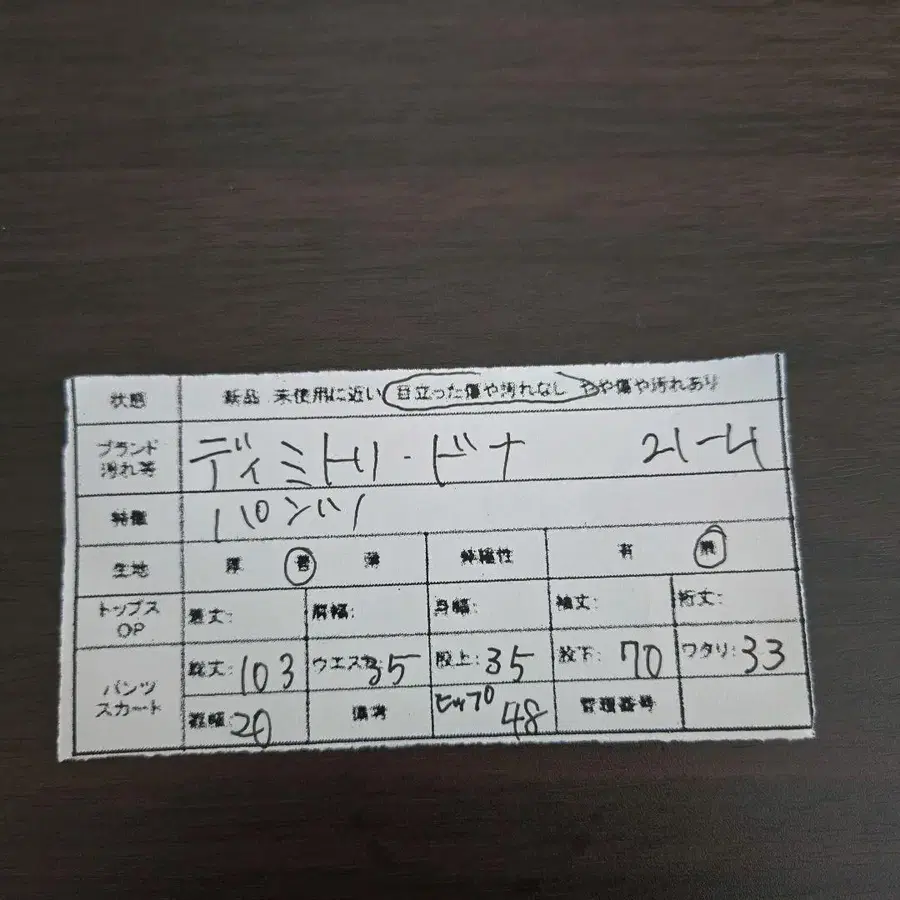 状態 新品 未使用に近い 目立った傷や汚れなし やや傷や汚れあり
ブランド 汚れ等 ディミトリ・ドナ 21-4
特徴 パンツ
生地 厚 普 薄 伸縮性 有 無
トップス OP 着丈: 肩幅: 身幅: 袖丈: 裄丈:
パンツ スカート 総丈: 103 ウエスト: 35 股上: 35 股下: 70 ワタリ: 33
裾幅: 20 備考 ヒップ 48 管理番号